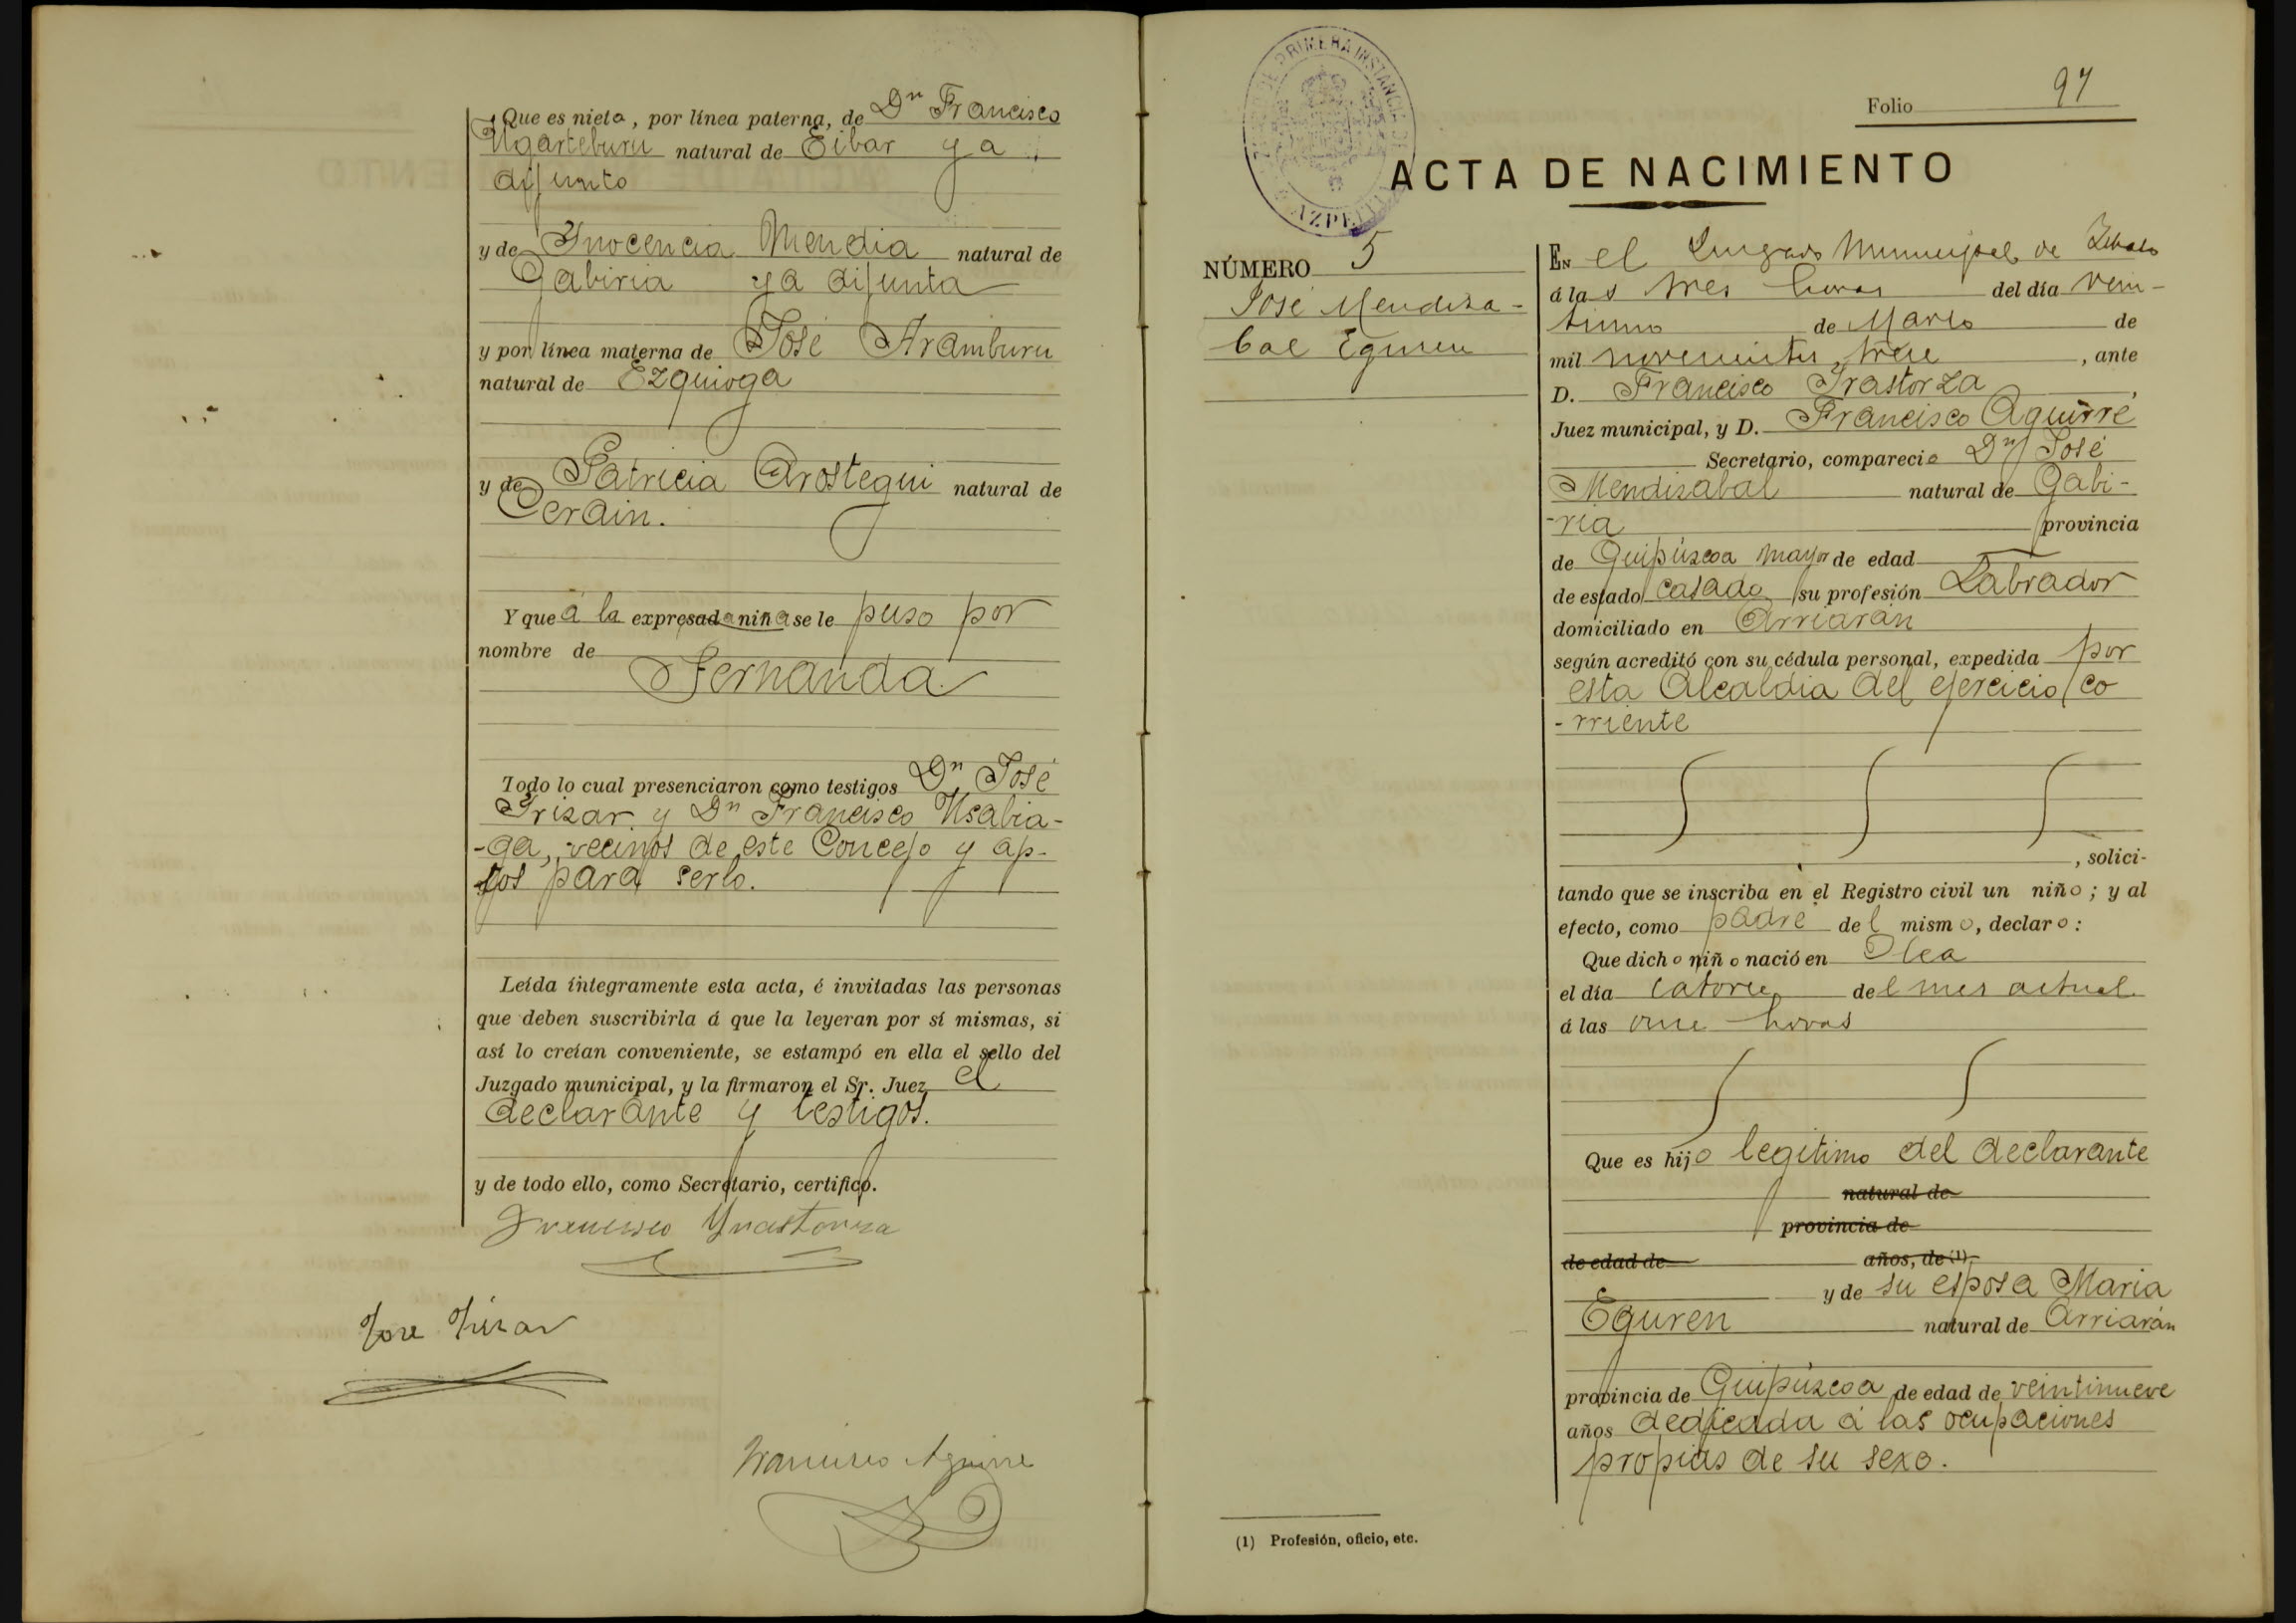 Que es nieta, por línea paterna, de Dn Francisco
Ugarteburu natural de Eibar ya
difunto
y de Ynocencia Mendia natural de
Gabiria ya difunta
y por línea materna de José Aramburu
natural de Ezquioga
y de Patricia Arostegui natural de
Cerain.
Y que á la expresada niña se le puso por
nombre de
Fernanda
Todo lo cual presenciaron como testigos Dn José
Irizar y Dn Francisco Usabia-
-ga, vecinos de este Concejo y ap-
tos para serlo.
Leída íntegramente esta acta, é invitadas las personas
que deben suscribirla á que la leyeran por sí mismas, si
así lo creían conveniente, se estampó en ella el sello del
Juzgado municipal, y la firmaron el Sr. Juez el
declarante y testigos.
y de todo ello, como Secretario, certifico.
Francisco Yrastorza
Jose Irizar
Francisco Aguirre
DE PRIMERA INSTANCIA DE
AZPEITIA
Folio 97
ACTA DE NACIMIENTO
NÚMERO 5
José Mendiza-
bal Eguren
EN el Juzgado Municipal de
á las tres horas del día vein-
tiuno de Marzo de
mil novecientos trece, ante
D. Francisco Irastorza,
Juez municipal, y D. Francisco Aguirre
Secretario, compareció Dn José
Mendizabal natural de Gabi-
-ria provincia
de Guipúzcoa mayor de edad
de estado casado su profesión Labrador
domiciliado en Arriarán
según acreditó con su cédula personal, expedida por
esta Alcaldia del ejercicio co
-rriente
, solici-
tando que se inscriba en el Registro civil un niño; y al
efecto, como padre del mismo, declaro:
Que dicho niño nació en Olea
el día catorce del mes actual.
á las once horas
Que es hijo legitimo del declarante
natural de
provincia de
de edad de años, de (1)
y de su esposa Maria
Eguren natural de Arriarán
provincia de Guipúzcoa de edad de veintinueve
años dedicada á las ocupaciones
propias de su sexo.
(1) Profesión, oficio, etc.